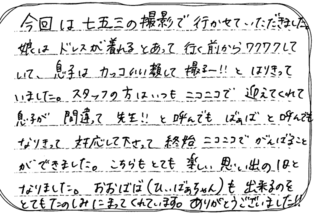 今回は七五三の撮影で行かせていただきました
娘はドレスが着れるとあって行く前からワクワクして
いて、息子はカッコいい顔して撮るー!!とはりきって
いました。スタッフの方はいつもニコニコで迎えてくれて
息子が間違って先生!!と呼んでもばぁばと呼んでも
なりきって対応して下さって終始ニコニコでがんばること
ができました。こちらもとても楽しい思い出の1日と
なりました。おおばば(ひぃばあちゃん)も出来るのを
とてもたのしみにまってくれています。ありがとうございました!!